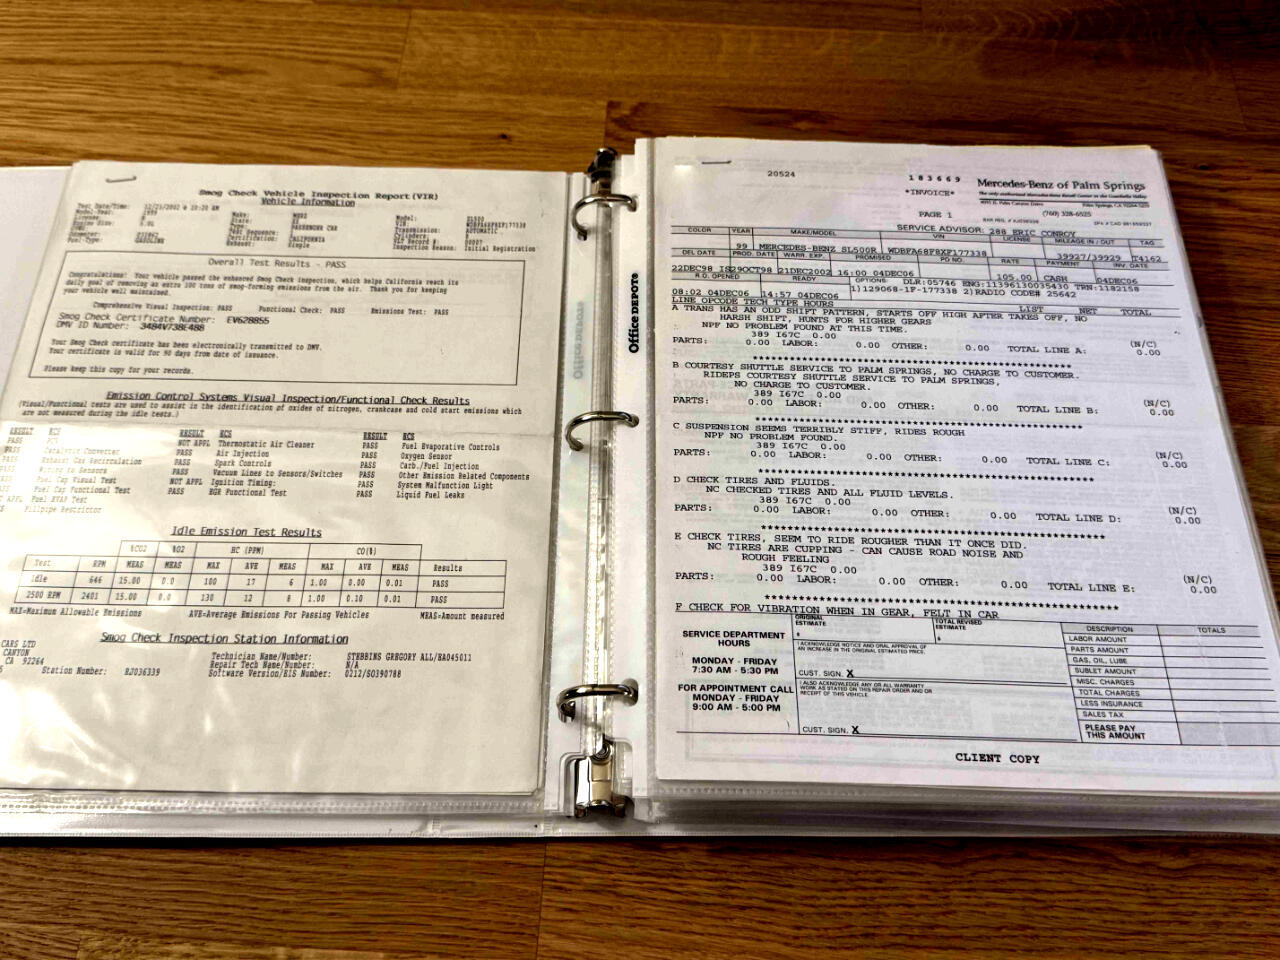 Smog Check Vehicle Inspection Report (VIR)
Vehicle Information
Test Date/Time: 12/23/2002 @ 10:20 AM
Model-Year: 1999 Make: MERZ Model: SL500
License: State:
Engine Size: 5.0L Type: PASSENGER CAR Transmission: AUTOMATIC
Certification: CALIFORNIA
Fuel-Type: GASOLINE Exhaust: Single Inspection Reason: Initial Registration
Overall Test Results - PASS
Congratulations! Your vehicle passed the enhanced Smog Check inspection, which helps California reach its
daily goal of removing an extra 100 tons of smog-forming emissions from the air. Thank you for keeping
your vehicle well maintained.
Comprehensive Visual Inspection: PASS Functional Check: PASS Emissions Test: PASS
Smog Check Certificate Number: EV628855
DMV ID Number: 3484V738E488
Your Smog Check certificate has been electronically transmitted to DMV.
Your certificate is valid for 90 days from date of issuance.
Please keep this copy for your records.
Emission Control Systems Visual Inspection/Functional Check Results
(Visual/Functional tests are used to assist in the identification of oxides of nitrogen, crankcase and cold start emissions which
are not measured during the idle tests.)
RESULT ECS RESULT ECS RESULT ECS
PASS PCV NOT APPL Thermostatic Air Cleaner PASS Fuel Evaporative Controls
PASS Catalytic Converter PASS Air Injection PASS Oxygen Sensor
PASS Exhaust Gas Recirculation PASS Spark Controls PASS Carb./Fuel Injection
PASS Wiring to Sensors PASS Vacuum Lines to Sensors/Switches PASS Other Emission Related Components
PASS Fuel Cap Visual Test NOT APPL Ignition Timing: PASS System Malfunction Light
Fuel Cap Functional Test PASS EGR Functional Test PASS Liquid Fuel Leaks
APPL Fuel EVAP Test
Fillpipe Restrictor
Idle Emission Test Results
%CO2 %O2 HC (PPM) CO(%)
Test RPM MEAS MEAS MAX AVE MEAS MAX AVE MEAS Results
Idle 646 15.00 0.0 100 17 6 1.00 0.00 0.01 PASS
2500 RPM 2401 15.00 0.0 130 12 8 1.00 0.10 0.01 PASS
MAX=Maximum Allowable Emissions AVE=Average Emissions For Passing Vehicles MEAS=Amount measured
Smog Check Inspection Station Information
CARS LTD
CANYON
CA 92264
Technician Name/Number: STEBBINS GREGORY ALL/EA045011
Repair Tech Name/Number: N/A
Station Number: RJ036339 Software Version/EIS Number: 0212/SO390788
Office DEPOT
Office DEPOT
20524
183669
*INVOICE*
Mercedes-Benz of Palm Springs
PAGE 1
(760) 328-6525
SERVICE ADVISOR: 288 ERIC CONROY
COLOR YEAR MAKE/MODEL VIN LICENSE MILEAGE IN / OUT TAG
99 MERCEDES-BENZ SL500R WDBFA68F8XF177338 39927/39929 T4162
DEL DATE PROD. DATE WARR. EXP. PROMISED PO NO. RATE PAYMENT INV. DATE
22DEC98 IS 29OCT98 21DEC2002 16:00 04DEC06 105.00 CASH 04DEC06
R.O. OPENED READY OPTIONS: DLR:05746 ENG:11396130035430 TRN:1182158
1)129068-1F-177338 2)RADIO CODE# 25642
08:02 04DEC06 14:57 04DEC06
LINE OPCODE TECH TYPE HOURS LIST NET TOTAL
A TRANS HAS AN ODD SHIFT PATTERN, STARTS OFF HIGH AFTER TAKES OFF, NO
HARSH SHIFT, HUNTS FOR HIGHER GEARS
NPF NO PROBLEM FOUND AT THIS TIME.
389 I67C 0.00 (N/C)
PARTS: 0.00 LABOR: 0.00 OTHER: 0.00 TOTAL LINE A: 0.00
B COURTESY SHUTTLE SERVICE TO PALM SPRINGS, NO CHARGE TO CUSTOMER.
RIDEPS COURTESY SHUTTLE SERVICE TO PALM SPRINGS,
NO CHARGE TO CUSTOMER.
389 I67C 0.00 (N/C)
PARTS: 0.00 LABOR: 0.00 OTHER: 0.00 TOTAL LINE B: 0.00
C SUSPENSION SEEMS TERRIBLY STIFF, RIDES ROUGH
NPF NO PROBLEM FOUND.
389 I67C 0.00 (N/C)
PARTS: 0.00 LABOR: 0.00 OTHER: 0.00 TOTAL LINE C: 0.00
D CHECK TIRES AND FLUIDS.
NC CHECKED TIRES AND ALL FLUID LEVELS.
389 I67C 0.00 (N/C)
PARTS: 0.00 LABOR: 0.00 OTHER: 0.00 TOTAL LINE D: 0.00
E CHECK TIRES, SEEM TO RIDE ROUGHER THAN IT ONCE DID.
NC TIRES ARE CUPPING - CAN CAUSE ROAD NOISE AND
ROUGH FEELING
389 I67C 0.00 (N/C)
PARTS: 0.00 LABOR: 0.00 OTHER: 0.00 TOTAL LINE E: 0.00
F CHECK FOR VIBRATION WHEN IN GEAR, FELT IN CAR
SERVICE DEPARTMENT
HOURS
MONDAY - FRIDAY
7:30 AM - 5:30 PM
FOR APPOINTMENT CALL
MONDAY - FRIDAY
9:00 AM - 5:00 PM
ORIGINAL ESTIMATE $
TOTAL REVISED ESTIMATE $
I ACKNOWLEDGE NOTICE AND ORAL APPROVAL OF
AN INCREASE IN THE ORIGINAL ESTIMATED PRICE.
CUST. SIGN. X
I ALSO ACKNOWLEDGE ANY OR ALL WARRANTY
WORK AS STATED ON THIS REPAIR ORDER AND OR
RECEIPT OF THIS VEHICLE.
CUST. SIGN. X
DESCRIPTION TOTALS
LABOR AMOUNT
PARTS AMOUNT
GAS, OIL, LUBE
SUBLET AMOUNT
MISC. CHARGES
TOTAL CHARGES
LESS INSURANCE
SALES TAX
PLEASE PAY
THIS AMOUNT
CLIENT COPY